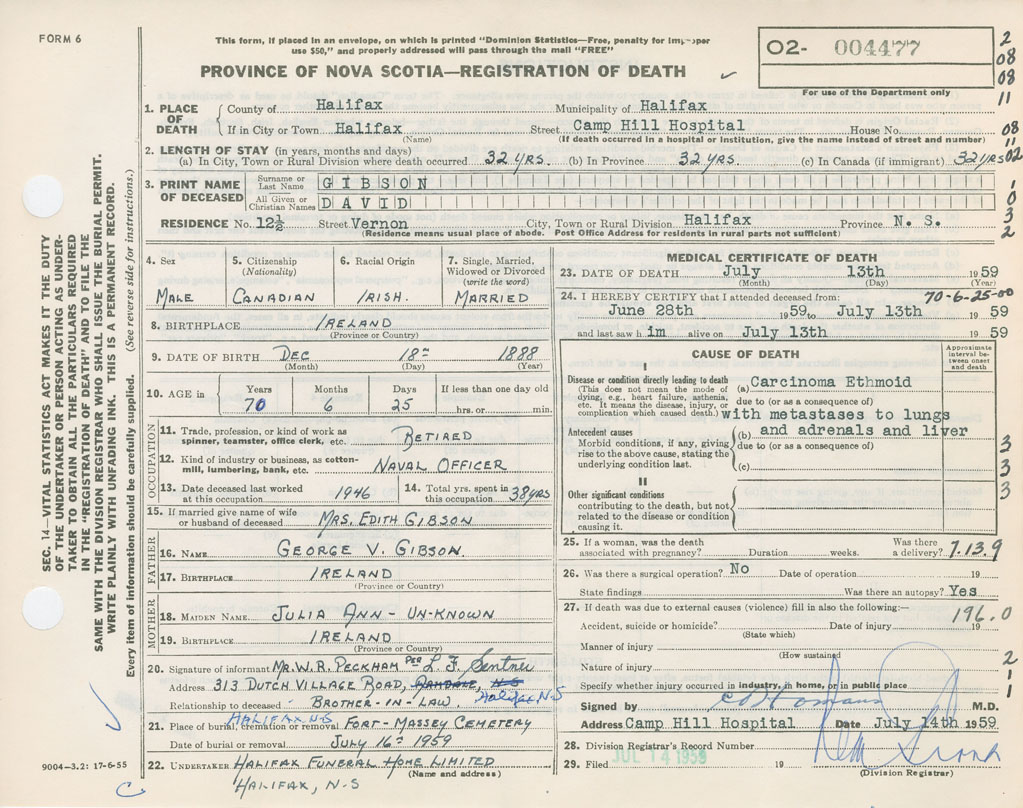 FORM 6
This form, if placed in an envelope, on which is printed "Dominion Statistics—Free, penalty for improper
use $50," and properly addressed will pass through the mail "FREE"
PROVINCE OF NOVA SCOTIA—REGISTRATION OF DEATH
02- 004477
For use of the Department only
2
08
08
11
08
11
02
1
0
3
2
1. PLACE OF DEATH
County of Halifax Municipality of Halifax
If in City or Town Halifax Street Camp Hill Hospital House No.
(Name) (If death occurred in a hospital or institution, give the name instead of street and number)
2. LENGTH OF STAY (in years, months and days)
(a) In City, Town or Rural Division where death occurred 32 YRS. (b) In Province 32 YRS. (c) In Canada (if immigrant) 32 YRS
3. PRINT NAME OF DECEASED
Surname or Last Name GIBSON
All Given or Christian Names DAVID
RESIDENCE No. 12½ Street Vernon City, Town or Rural Division Halifax Province N. S.
(Residence means usual place of abode. Post Office Address for residents in rural parts not sufficient)
4. Sex
MALE
5. Citizenship
(Nationality)
CANADIAN
6. Racial Origin
IRISH.
7. Single, Married,
Widowed or Divorced
(write the word)
MARRIED
8. BIRTHPLACE IRELAND
(Province or Country)
9. DATE OF BIRTH DEC 18th 1888
(Month) (Day) (Year)
10. AGE in
Years Months Days If less than one day old
70 6 25 hrs. or min.
OCCUPATION
11. Trade, profession, or kind of work as
spinner, teamster, office clerk, etc. RETIRED
12. Kind of industry or business, as cotton-
mill, lumbering, bank, etc. NAVAL OFFICER
13. Date deceased last worked
at this occupation 1946
14. Total yrs. spent in
this occupation 38 YRS
15. If married give name of wife
or husband of deceased MRS. EDITH GIBSON
FATHER
16. NAME GEORGE V. GIBSON.
17. BIRTHPLACE IRELAND
(Province or Country)
MOTHER
18. MAIDEN NAME JULIA ANN - UN-KNOWN
19. BIRTHPLACE IRELAND
(Province or Country)
20. Signature of informant MR. W. R. PECKHAM PER L. F.
Address 313 DUTCH VILLAGE ROAD, N.S. Halifax, N.S
Relationship to deceased BROTHER-IN-LAW.
HALIFAX N.S
21. Place of burial, cremation or removal FORT-MASSEY CEMETERY
Date of burial or removal JULY 16th 1959
22. UNDERTAKER HALIFAX FUNERAL HOME LIMITED
(Name and address)
HALIFAX, N.S
9004—3.2: 17-6-55
MEDICAL CERTIFICATE OF DEATH
23. DATE OF DEATH July 13th 1959
(Month) (Day) (Year)
70-6-25-00
24. I HEREBY CERTIFY that I attended deceased from:
June 28th 1959 to July 13th 1959
and last saw him alive on July 13th 1959
CAUSE OF DEATH
Approximate
interval be-
tween onset
and death
I
Disease or condition directly leading to death
(This does not mean the mode of
dying, e.g., heart failure, asthenia,
etc. It means the disease, injury, or
complication which caused death.)
(a) Carcinoma Ethmoid
due to (or as a consequence of)
with metastases to lungs
Antecedent causes
Morbid conditions, if any, giving
rise to the above cause, stating the
underlying condition last.
(b) and adrenals and liver
due to (or as a consequence of)
(c)
3
3
3
II
Other significant conditions
contributing to the death, but not
related to the disease or condition
causing it.
25. If a woman, was the death
associated with pregnancy? Duration weeks. Was there
a delivery? 7.13.9
26. Was there a surgical operation? No Date of operation 19
State findings Was there an autopsy? Yes
27. If death was due to external causes (violence) fill in also the following:—
196.0
Accident, suicide or homicide? Date of injury 19
(State which)
Manner of injury
(How sustained
Nature of injury
2
1
1
Specify whether injury occurred in industry, in home, or in public place
Signed by M.D.
Address Camp Hill Hospital Date July 14th 1959
28. Division Registrar's Record Number
29. Filed JUL 14 1959 19
(Division Registrar)
SEC. 14—VITAL STATISTICS ACT MAKES IT THE DUTY
OF THE UNDERTAKER OR PERSON ACTING AS UNDER-
TAKER TO OBTAIN ALL THE PARTICULARS REQUIRED
IN THE "REGISTRATION OF DEATH" AND TO FILE THE
SAME WITH THE DIVISION REGISTRAR WHO SHALL ISSUE THE BURIAL PERMIT.
WRITE PLAINLY WITH UNFADING INK. THIS IS A PERMANENT RECORD.
Every item of information should be carefully supplied. (See reverse side for instructions.)